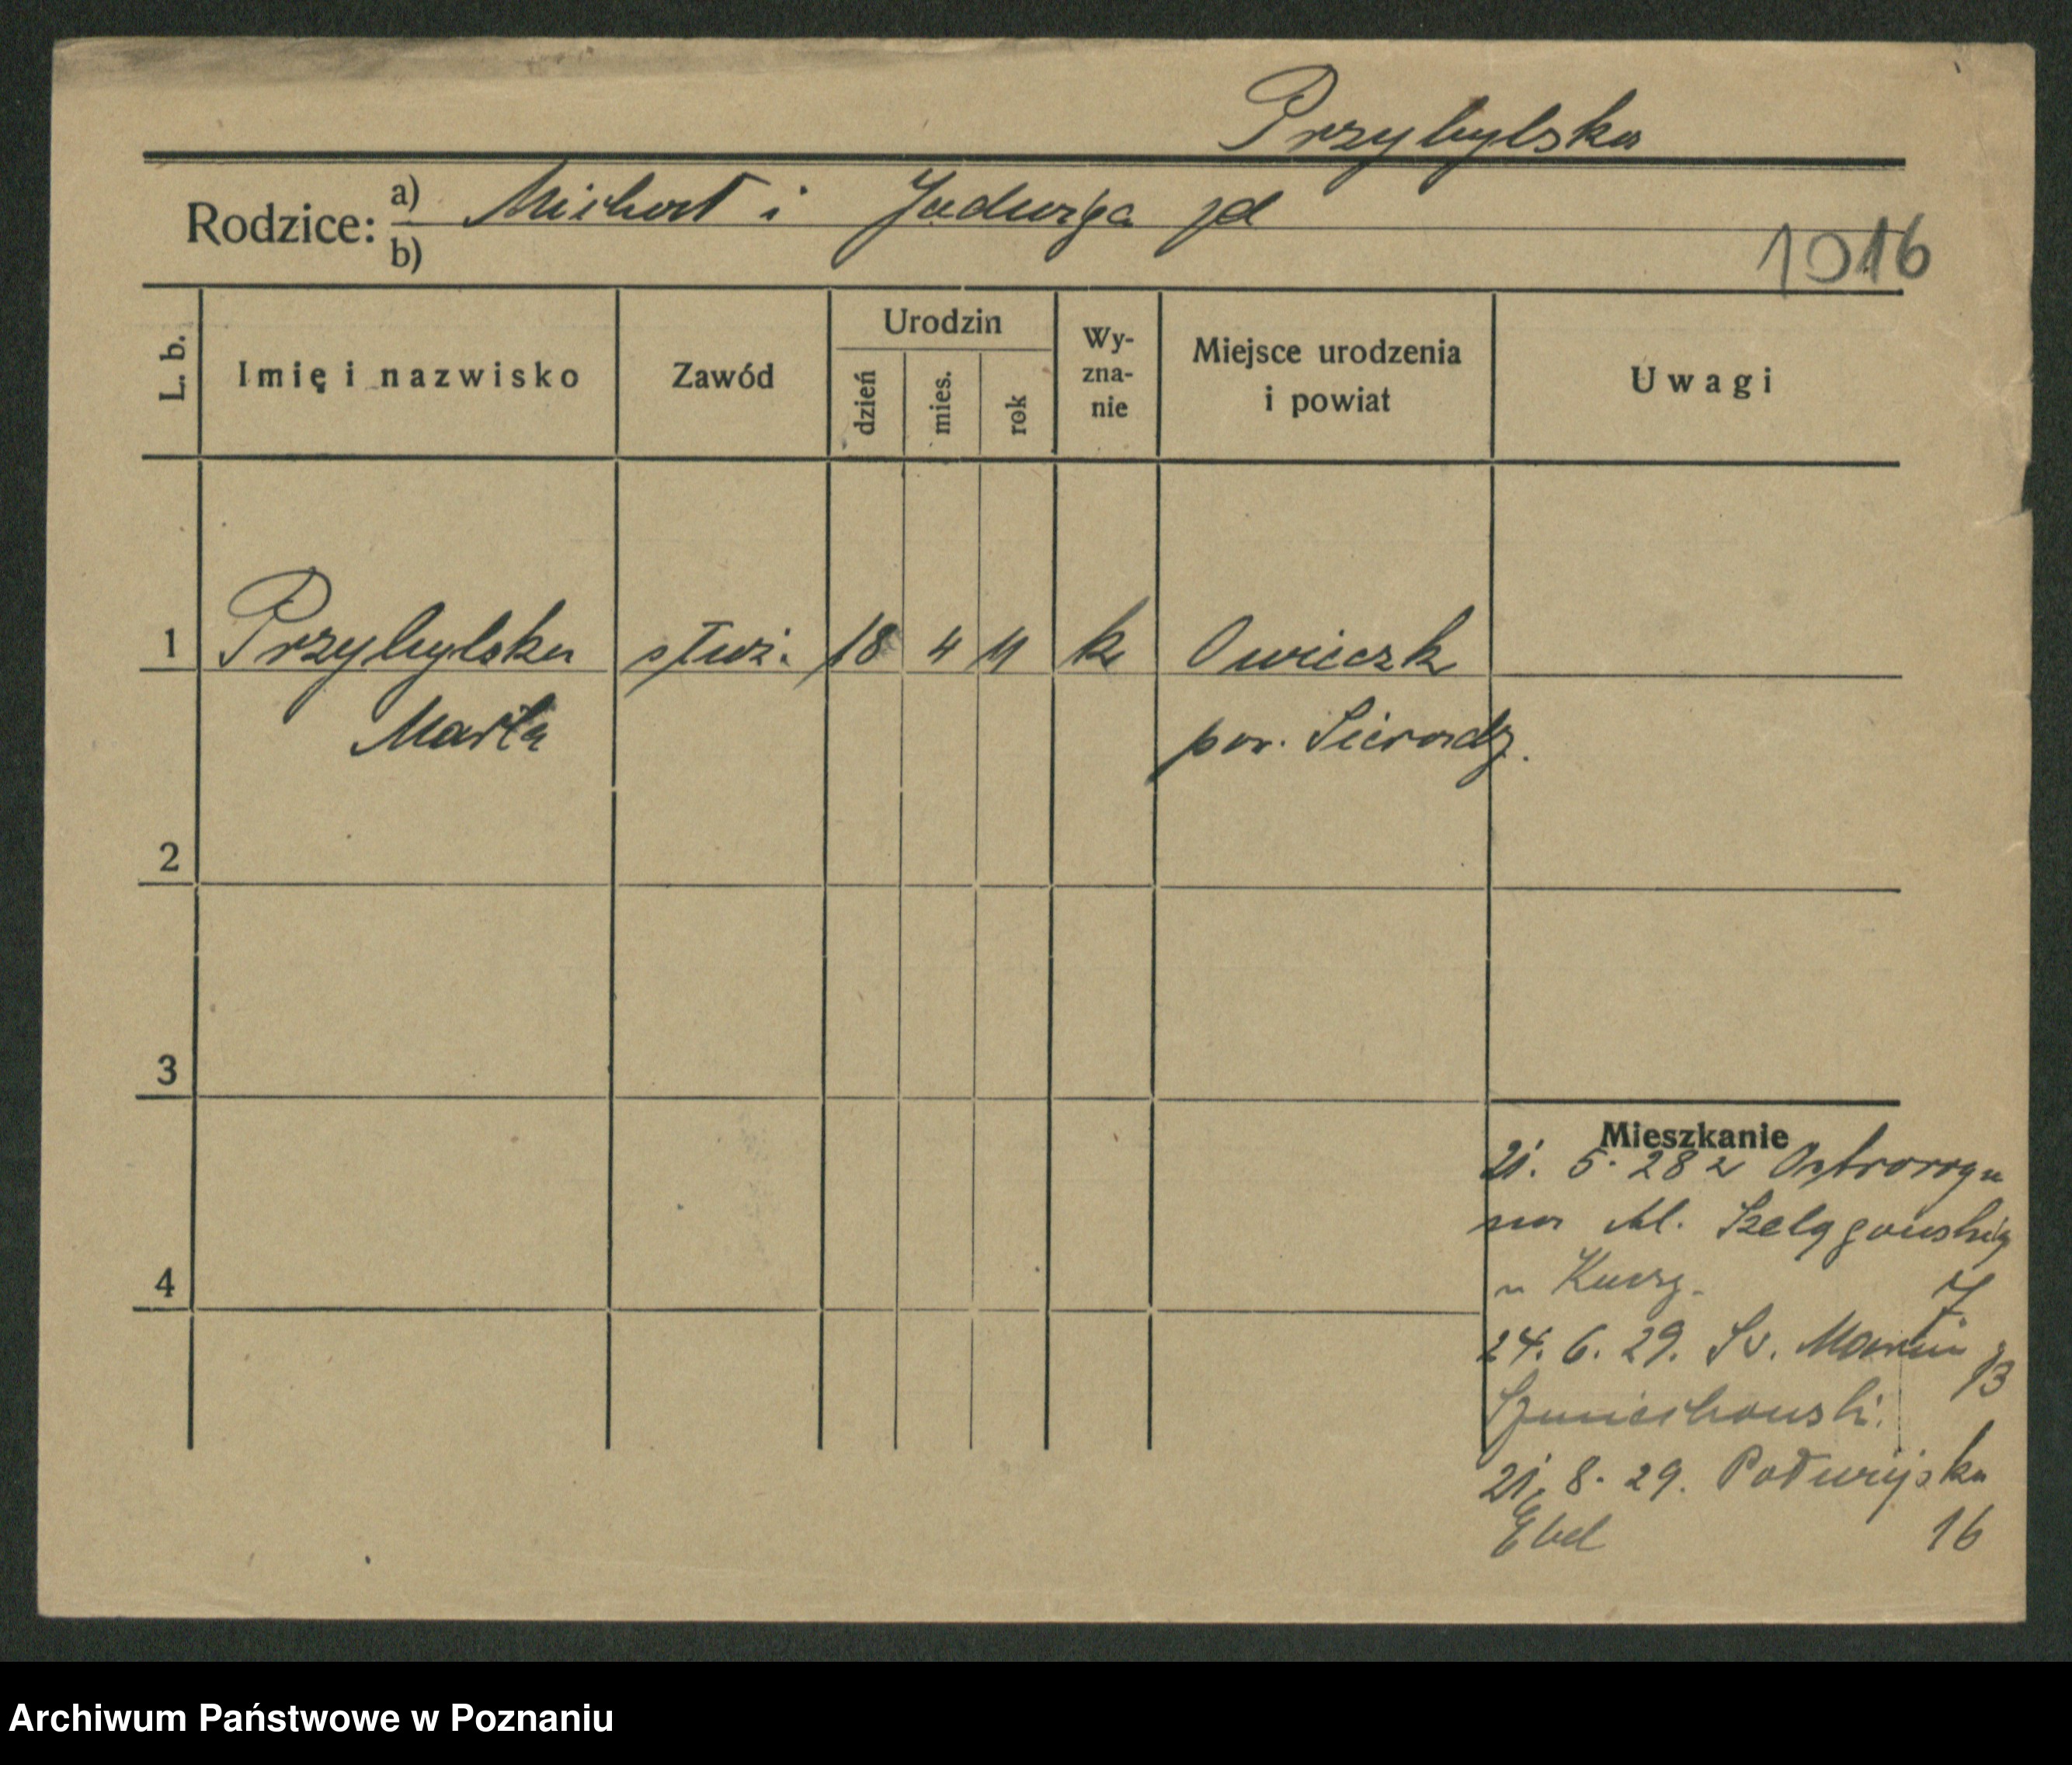 Przybylska
Rodzice: a) Michał i Jadwiga jd
b)
1016
L. b.
Imię i nazwisko
Zawód
Urodzin
dzień
mies.
rok
Wy-
zna-
nie
Miejsce urodzenia
i powiat
Uwagi
1 Przybylska służ. 18 4 11 k Owieczk
Marta pow. Sieradz.
2
3
4
Mieszkanie
21. 5. 28 z Ostroroga
na Al. Szelągowską
u 7
24. 6. 29. Sv. Marcin 13
21. 8. 29. Połwiejska
Ebel 16
Archiwum Państwowe w Poznaniu